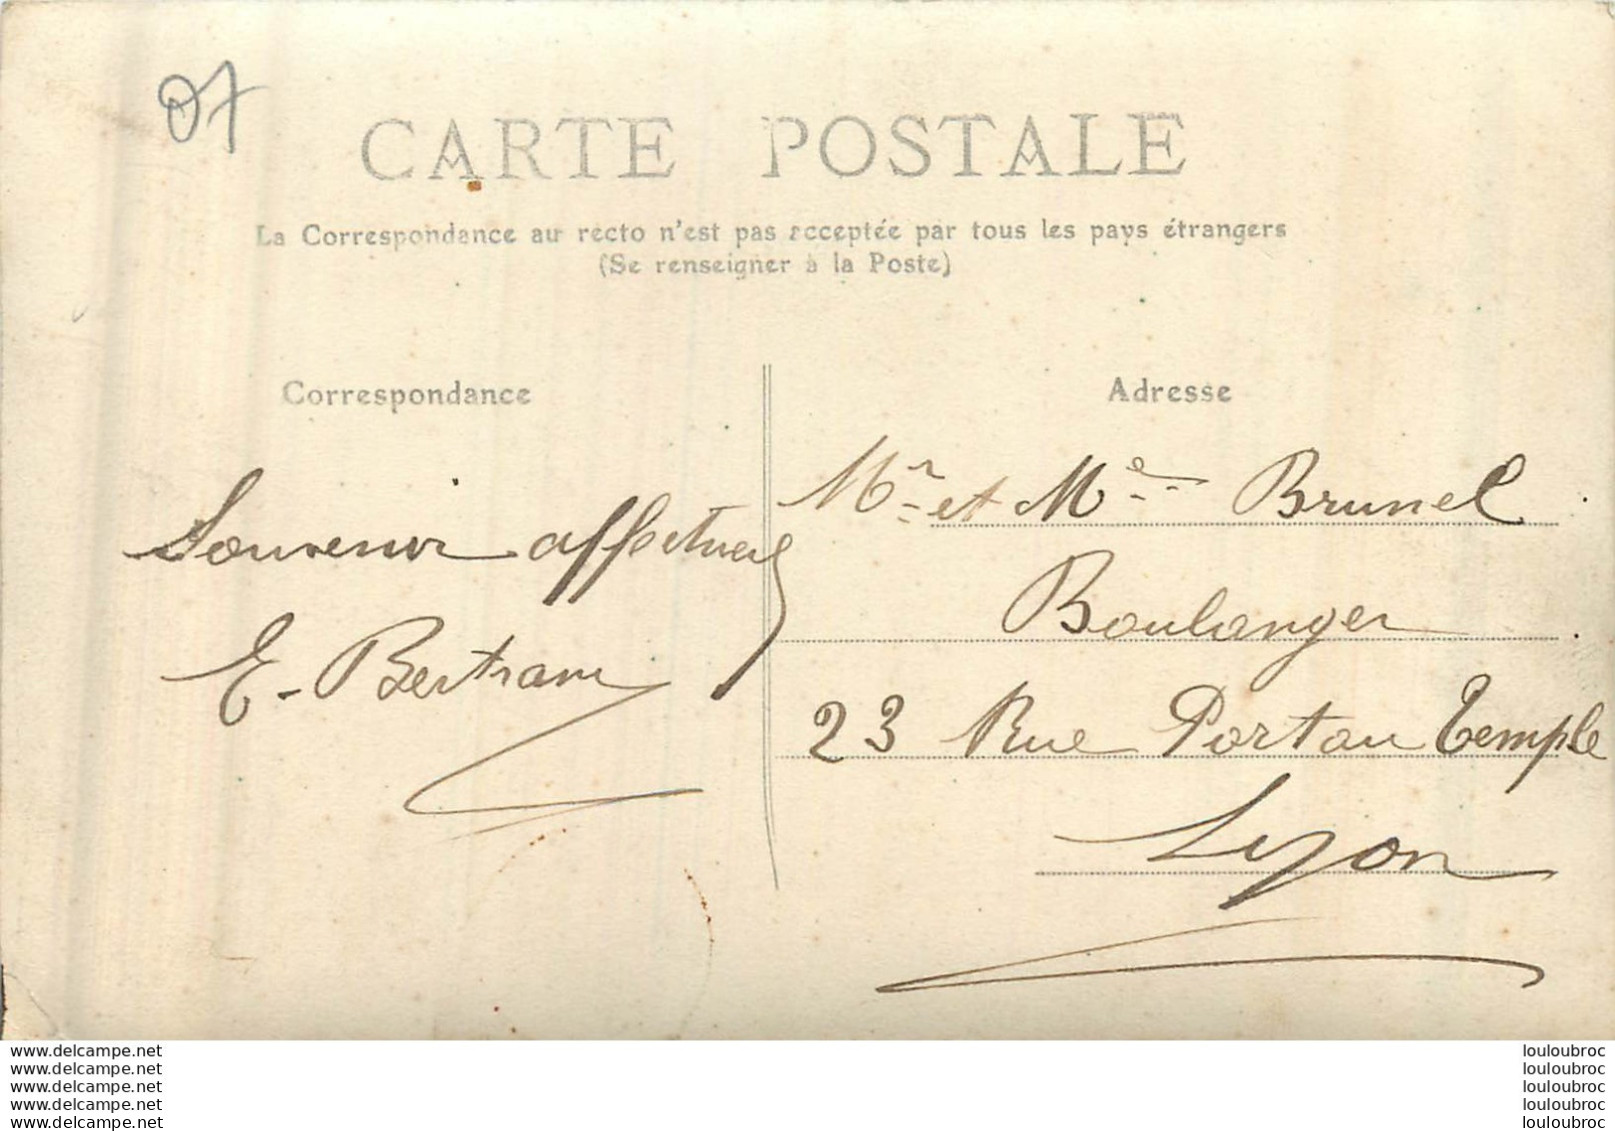 07
CARTE POSTALE
La Correspondance au recto n'est pas acceptée par tous les pays étrangers
(Se renseigner à la Poste)
Correspondance
Souvenir affectueux
E. Bertrand
Adresse
Mr et Me Brunel
Boulanger
23 Rue Port au Temple
Lyon
www.delcampe.net
www.delcampe.net
www.delcampe.net
www.delcampe.net
www.delcampe.net
louloubroc
louloubroc
louloubroc
louloubroc
louloubroc